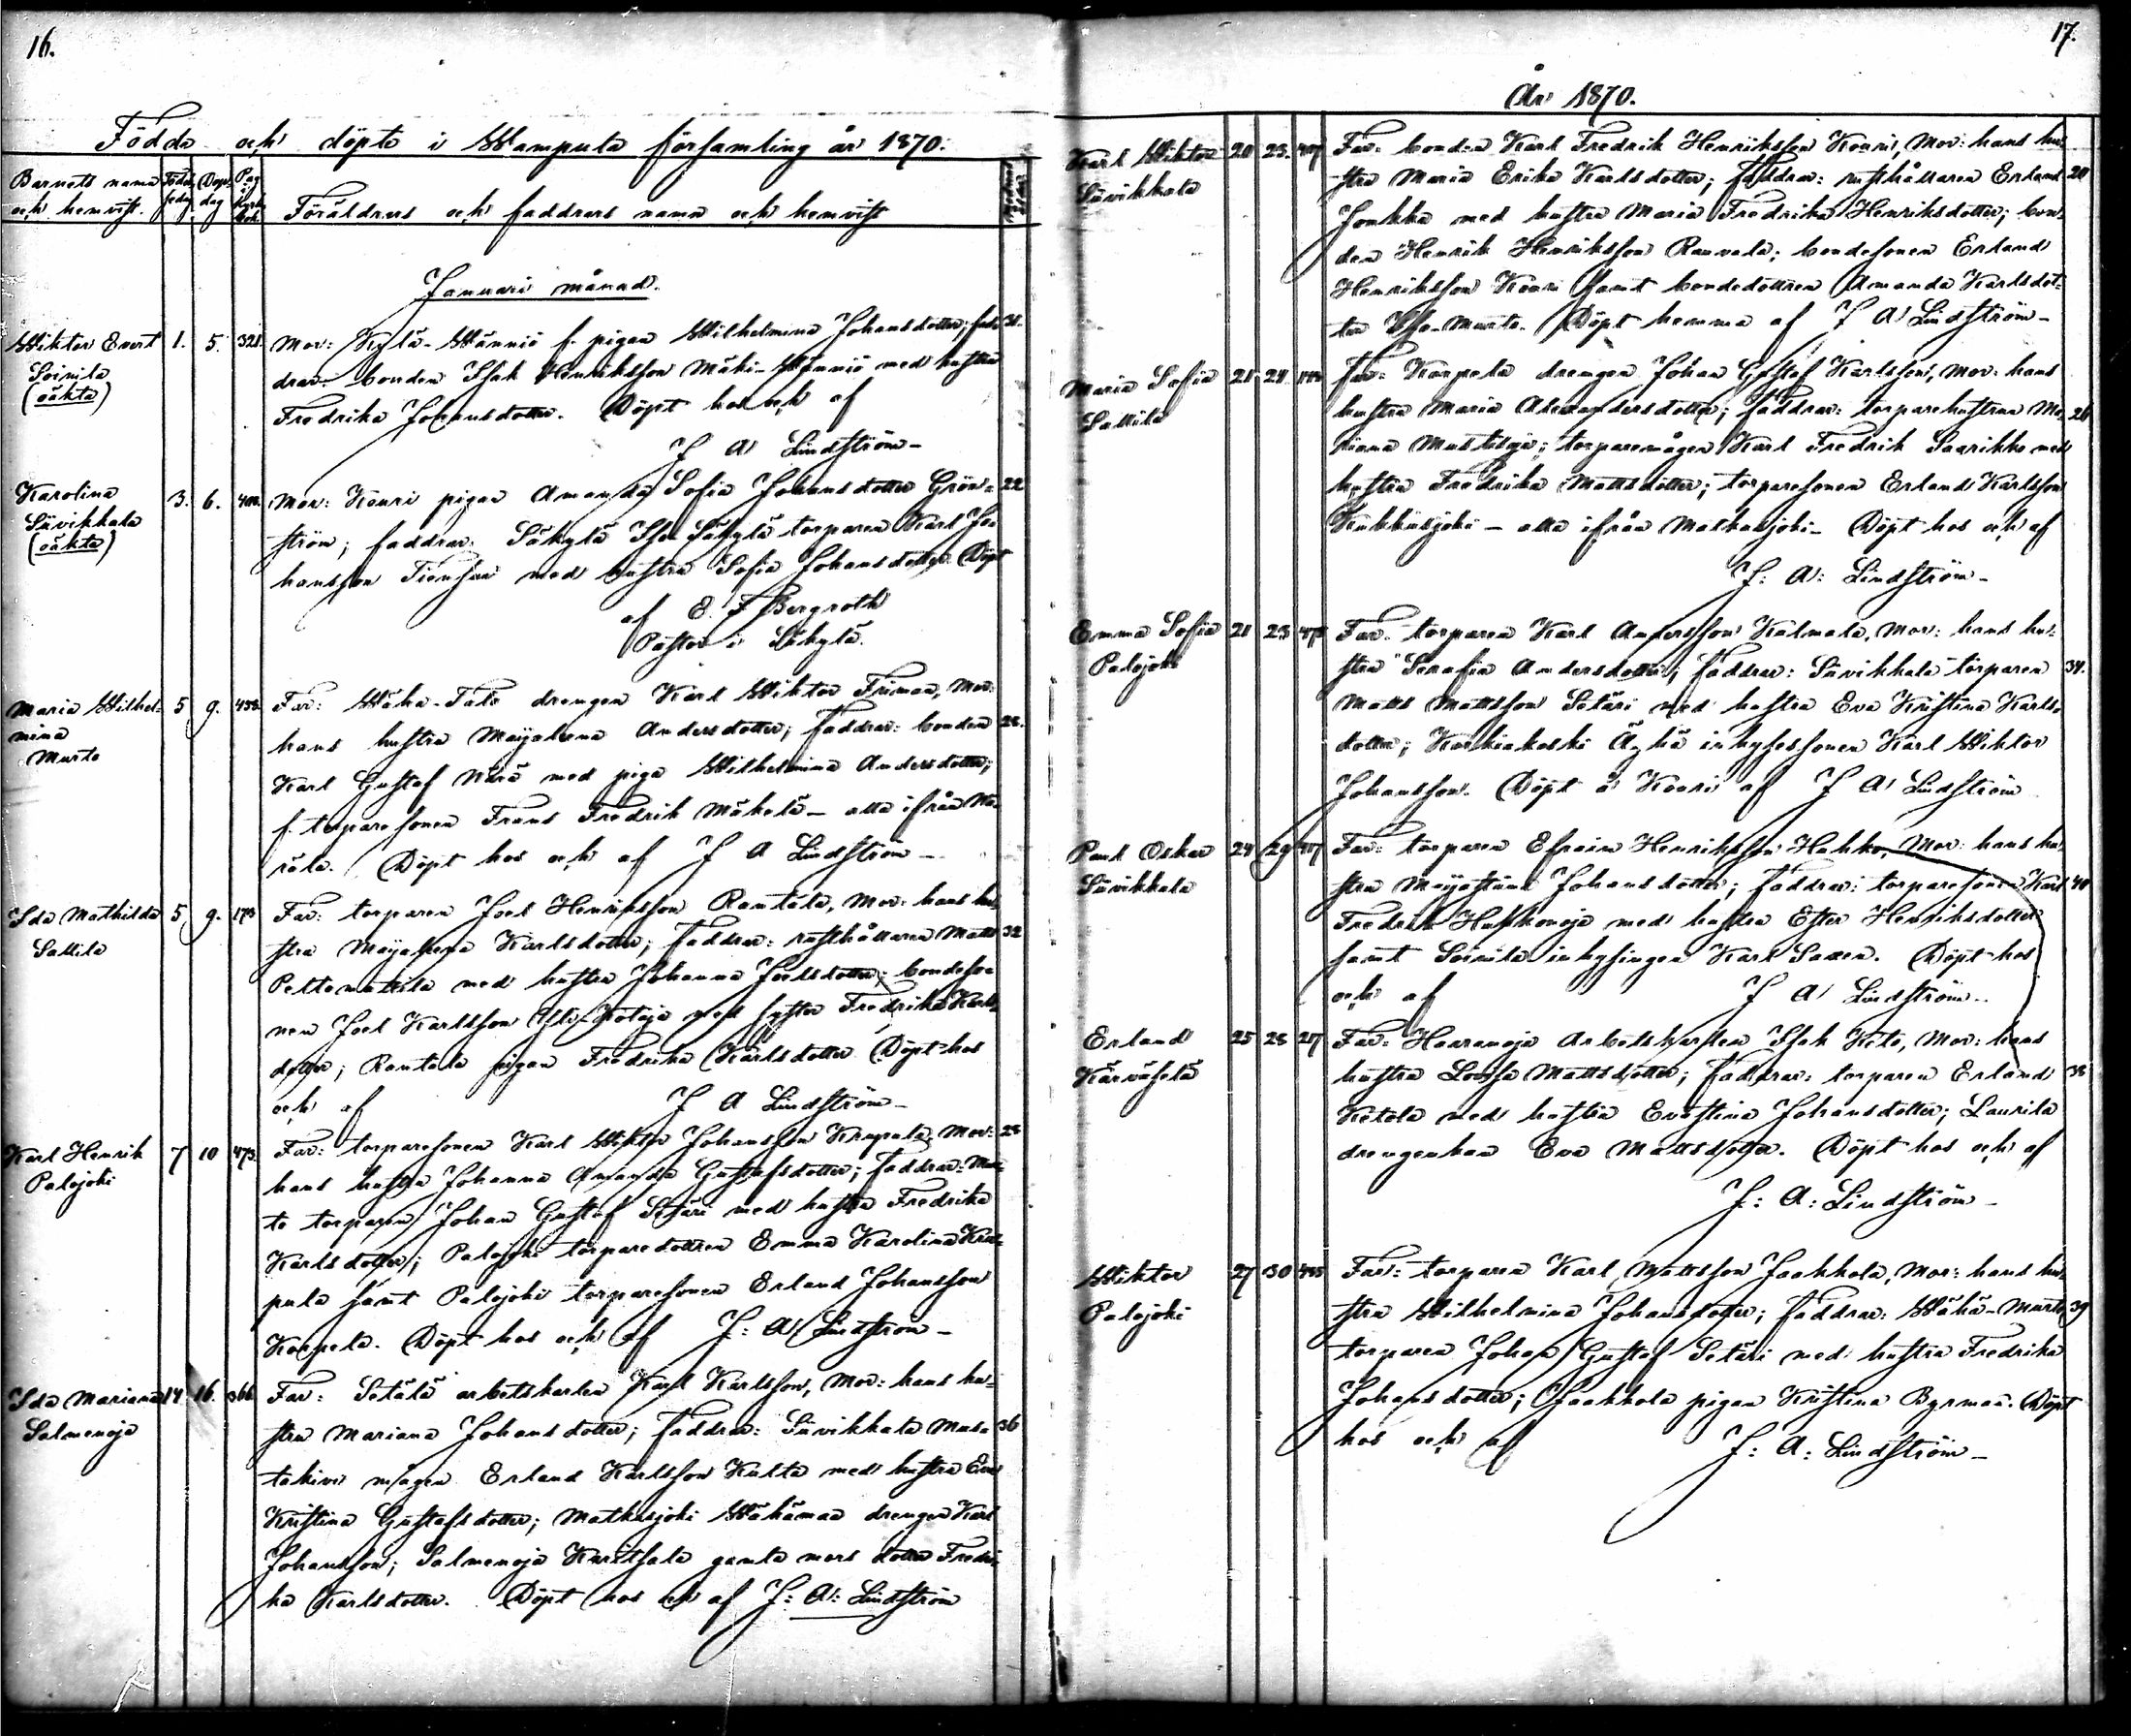 16.
Födda och döpta i Wampula församling år 1870.
Barnets namn och hemvist.
Födelsedag
Döpdag
Pag Kyrkbok.
Föräldrars och faddrars namn och hemvist
Modrens ålder
Januari månad.
Wiktor Evert 1. 5. 321. Mor: Kylä-Wänniö f. pigan Wilhelmina Johansdotter; fad- 31.
Soinila drar: bonden Isak Henriksson Mäki-Wänniö med hustru
(oäkta) Fredrika Johansdotter. Döpt hos och af
J A Lindström-
Karolina 3. 6. Mor: Kouri pigan Amanda Sofia Johansdotter Grön- 22
Suvikkala ström; faddrar: Säkylä Iso Säkylä torparen Karl Jo-
(oäkta) hansson med hustru Sofia Johansdotter. Döpt
af E. F Bergroth
Pastor i Säkylä.
Maria Wilhel- 5 9. 438. Far: Wäha-Talo drengen Karl Wiktor Friman, Mor:
mina hans hustru Majalena Andersdotter; faddrar: bonden 28.
Murto Karl Gustaf med piga Wilhelmina Andersdotter;
f. torparesonen Frans Fredrik Mäkelä- alla ifrån
Döpt hos och af J A Lindström-
Ida Mathilda 5 9. 173 Far: torparen Joel Henriksson Rantala, Mor: hans hu-
Sallila stru Majalena Karlsdotter; faddrar: rusthållaren Matts 32
med hustru Johanna Joelsdotter; bondeso-
nen Joel Karlsson med syster Fredrika Karls-
dotter; Rantala pigan Fredrika Karlsdotter. Döpt hos
och af J A Lindström-
Karl Henrik 7 10 473. Far: torparesonen Karl Wiktor Johansson Krupula, Mor: 28
Palojoki hans hustru Johanna Amanda Gustafsdotter; faddrar: Mur-
to torparen Johan Gustaf Setäri med hustru Fredrika
Karlsdotter; Palojoki torparedottren Emma Karolina Kru-
pula samt Palojoki torparesonen Erland Johansson
Korpela. Döpt hos och af J: A: Lindström-
Ida Mariana 14. 16. 366. Far: Setälä arbetskarlen Karl Karlsson, Mor: hans hu-
Salmenoja stru Mariana Johansdotter; faddrar: Suvikkala Mus- 36
takivi mågen Erland Karlsson Kulta med hustru Eva
Kristina Gustafsdotter; Matkusjoki Wähämaa drengen Karl
Johansson; Salmenoja Kuritsala gamla mors dotter Fredri-
ka Karlsdotter. Döpt hos och af J: A: Lindström
17.
År 1870.
Karl Wiktor 20 23. 407 Far: bonden Karl Fredrik Henriksson Kouri, Mor: hans hu-
Suvikkala stru Maria Erika Karlsdotter; faddrar: rusthållaren Erland 20
Jonkka med hustru Maria Fredrika Henriksdotter; bon-
den Henrik Henriksson Rauvala; bondesonen Erland
Henriksson Kouri samt bondedottren Amanda Karlsdot-
ter Iso-Murto. Döpt hemma af J A Lindström-
Maria Sofia 21 24 Far: Korpela drengen Johan Gustaf Karlsson, Mor: hans
Sallila hustru Maria Alexandersdotter; faddrar: torparehustrun Ma- 26
riana Mustaoja; torparemågen Karl Fredrik Saarikko med
hustru Fredrika Mattsdotter; torparesonen Erland Karlsson
Kukkusjoki- alla ifrån Matkusjoki- Döpt hos och af
J: A: Lindström-
Emma Sofia 21 23 473 Far: torparen Karl Andersson Kälmälä, Mor: hans hu-
Palojoki stru Serafia Andersdotter; faddrar: Suvikkala torparen 34.
Matts Mattsson Setäri med hustru Eva Kristina Karls-
dotter; Korkiakoski Äyhö inhysessonen Karl Wiktor
Johansson. Döpt å Kouri af J A Lindström
Paul Oskar 24 29 417 Far: torparen Efraim Henriksson Hakko, Mor: hans hu-
Suvikkala stru Majastina Johansdotter; faddrar: torparesonen Karl 40
Fredrik Huhkonoja med hustru Ester Henriksdotter
samt Soinila inhysingen Karl Saxen. Döpt hos
och af J A Lindström-
Erland 25 28 217 Far: Haaranoja Arbetskarlen Isak Keto, Mor: hans
Kärväselä hustru Lovisa Mattsdotter; faddrar: torparen Erland 38
Ketola med hustru Evastina Johansdotter; Laurila
drengenkan Eva Mattsdotter. Döpt hos och af
J: A: Lindström-
Wiktor 27 30 455 Far: torparen Karl Mattsson Jaakkola, Mor: hans hu-
Palojoki stru Wilhelmina Johansdotter; faddrar: Wähä-Murto 39
torparen Johan Gustaf Setäri med hustru Fredrika
Johansdotter; Jaakkola pigan Kristina Byrman. Döpt
hos och af J: A: Lindström-